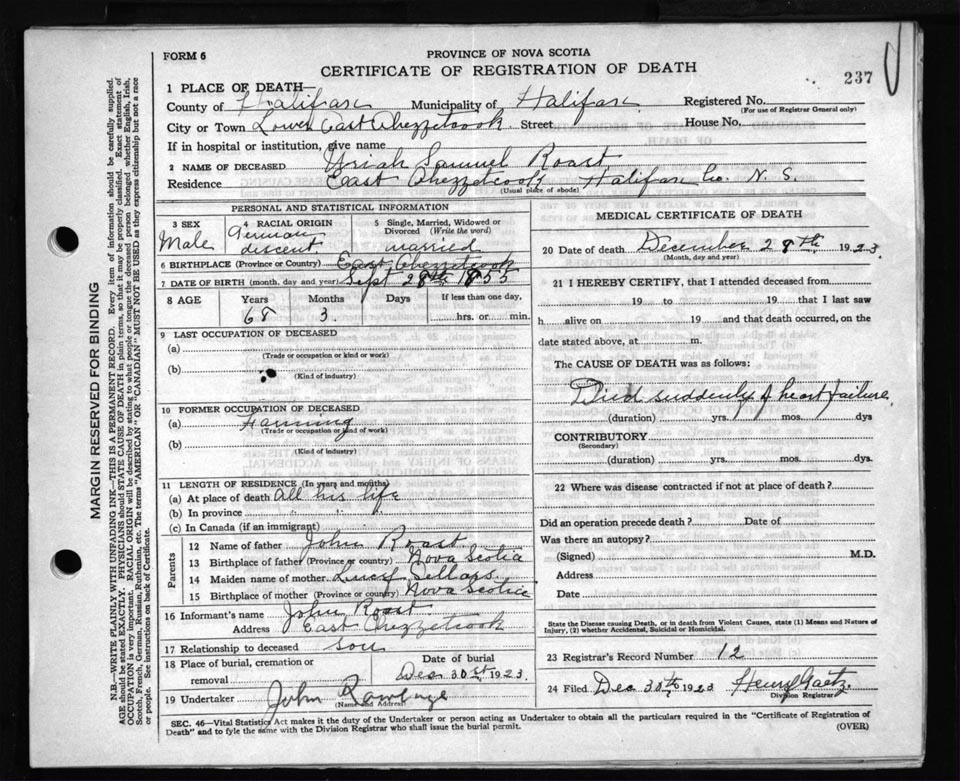 FORM 6
PROVINCE OF NOVA SCOTIA
CERTIFICATE OF REGISTRATION OF DEATH
237
1 PLACE OF DEATH—
County of Halifax Municipality of Halifax Registered No.
(For use of Registrar General only)
City or Town Lower East Chezzetcook Street House No.
If in hospital or institution, give name
2 NAME OF DECEASED Uriah Samuel Roast
Residence East Chezzetcook Halifax Co. N. S.
(Usual place of abode)
PERSONAL AND STATISTICAL INFORMATION
3 SEX Male
4 RACIAL ORIGIN German descent
5 Single, Married, Widowed or Divorced (Write the word) married
6 BIRTHPLACE (Province or Country) East Chezzetcook
7 DATE OF BIRTH (month, day and year) Sept 28th 1855
8 AGE Years Months Days If less than one day,
68 3. hrs. or min.
9 LAST OCCUPATION OF DECEASED
(a)
(Trade or occupation or kind of work)
(b)
(Kind of industry)
10 FORMER OCCUPATION OF DECEASED
(a) Farming
(Trade or occupation or kind of work)
(b)
(Kind of industry)
11 LENGTH OF RESIDENCE (In years and months)
(a) At place of death All his life
(b) In province " " "
(c) In Canada (if an immigrant)
Parents
12 Name of father John Roast
13 Birthplace of father (Province or country) Nova Scotia
14 Maiden name of mother Lucy Sellars.
15 Birthplace of mother (Province or country) Nova Scotia
16 Informant's name John Roast
Address East Chezzetcook
17 Relationship to deceased son
18 Place of burial, cremation or removal
Date of burial
Dec 30th 1923.
19 Undertaker John
(Name and Address)
MEDICAL CERTIFICATE OF DEATH
20 Date of death December 28th 1923
(Month, day and year)
21 I HEREBY CERTIFY, that I attended deceased from
19 to 19 that I last saw
h alive on 19 and that death occurred, on the
date stated above, at m.
The CAUSE OF DEATH was as follows:
Died suddenly of heart failure,
(duration) yrs. mos. dys
CONTRIBUTORY
(Secondary)
(duration) yrs. mos. dys.
22 Where was disease contracted if not at place of death?
Did an operation precede death? Date of
Was there an autopsy?
(Signed) M.D.
Address
Date
State the Disease causing Death, or in death from Violent Causes, state (1) Means and Nature of
Injury, (2) whether Accidental, Suicidal or Homicidal.
23 Registrar's Record Number 12
24 Filed Dec 30th 1923 Henry Gaetz
Division Registrar
SEC. 46—Vital Statistics Act makes it the duty of the Undertaker or person acting as Undertaker to obtain all the particulars required in the "Certificate of Registration of
Death" and to fyle the same with the Division Registrar who shall issue the burial permit.
(OVER)
MARGIN RESERVED FOR BINDING
N.B.—WRITE PLAINLY WITH UNFADING INK—THIS IS A PERMANENT RECORD. Every item of information should be carefully supplied.
AGE should be stated EXACTLY. PHYSICIANS should STATE CAUSE OF DEATH in plain terms, so that it may be properly classified. Exact statement of
OCCUPATION is very important. RACIAL ORIGIN will be described by stating to what people or tongue the deceased person belonged, whether English, Irish,
Scotch, French, German, Russian, Ruthenian, etc. The terms "AMERICAN" OR "CANADIAN" MUST NOT BE USED as they express citizenship but not a race
or people. See instructions on back of Certificate.